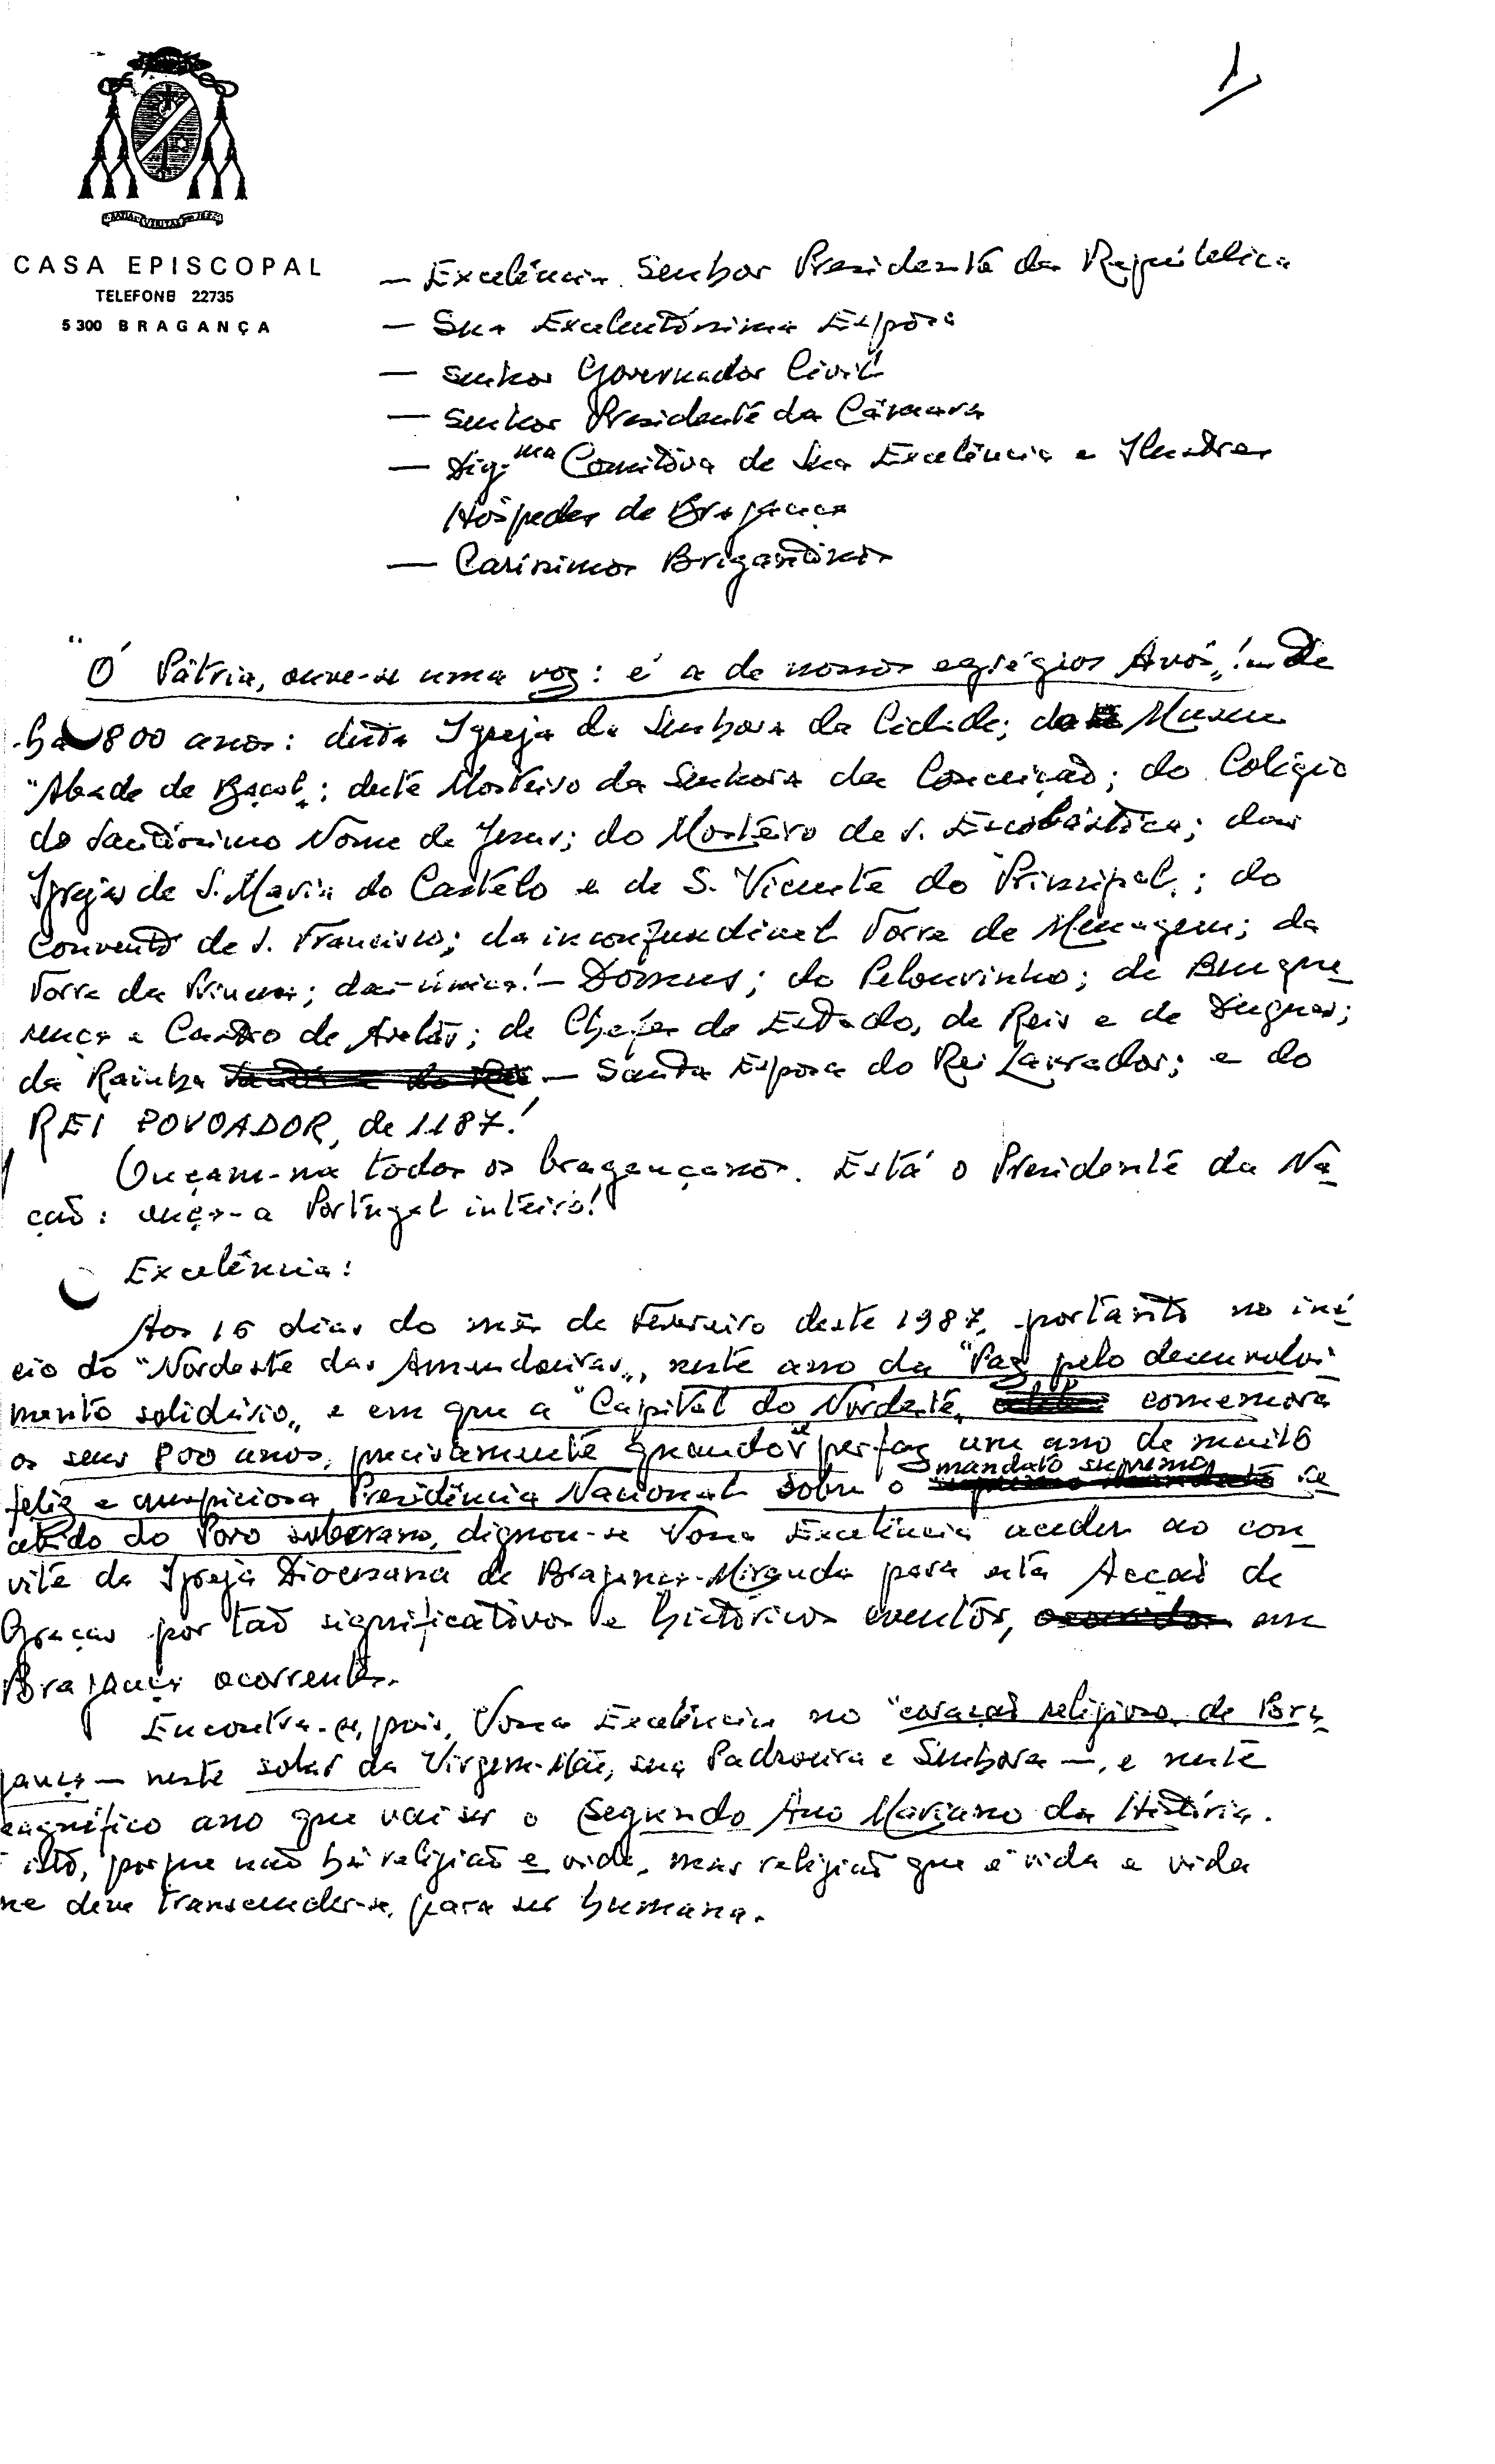 1
CASA EPISCOPAL
TELEFONE 22735
5300 BRAGANÇA
— Excelência Senhor Presidente da República
— Sua Excelentíssima Esposa
— Senhor Governador Civil
— Senhor Presidente da Câmara
— Dig.ma Comitiva de Sua Excelência e Ilustres
Hóspedes de Bragança
— Caríssimos Brigantinos
"Ó Pátria, ouve-se uma voz: é a de nossos egrégios Avós"!... De
há 800 anos: desta Igreja da Senhora da Cidade; do Museu
"Abade de Baçal"; deste Mosteiro da Senhora da Conceição; do Colégio
do Santíssimo Nome de Jesus; do Mosteiro de S. Escolástica; das
Igrejas de S. Maria do Castelo e de S. Vicente do "Principal"; do
Convento de S. Francisco; da inconfundível Torre de Menagem; da
Torre da Princesa; da - única! - Domus; do Pelourinho; de Benque_
rença e Castro de Avelãs; de Chefes de Estado, de Reis e de Duques;
da Rainha — Santa Esposa do Rei Lavrador; e do
REI POVOADOR, de 1187!
Ouçam-na todos os bragançanos. Está o Presidente da Na_
ção: ouça-a Portugal inteiro!
Excelência:
Aos 16 dias do mês de Fevereiro deste 1987, portanto no iní_
cio do "Nordeste das Amendoeiras", neste ano da "Paz pelo desenvolvi_
mento solidário", e em que a "Capital do Nordeste" comemora
os seus 800 anos, precisamente quando se perfaz um ano de muito
feliz e auspiciosa Presidência Nacional sobre o mandato supremo re_
cebido do Povo soberano, dignou-se Vossa Excelência aceder ao con_
vite da Igreja Diocesana de Bragança-Miranda para esta Acção de
Graças por tão significativos e históricos eventos, em
Bragança ocorrentes.
Encontra-se, pois, Vossa Excelência no "coração religioso" de Bra_
gança — neste solar da Virgem-Mãe, sua Padroeira e Senhora —, e neste
magnífico ano que vai ser o Segundo Ano Mariano da História.
isto, porque não há religião e vida, mas religião que é vida e vida
que deve transcender-se, para ser humana.